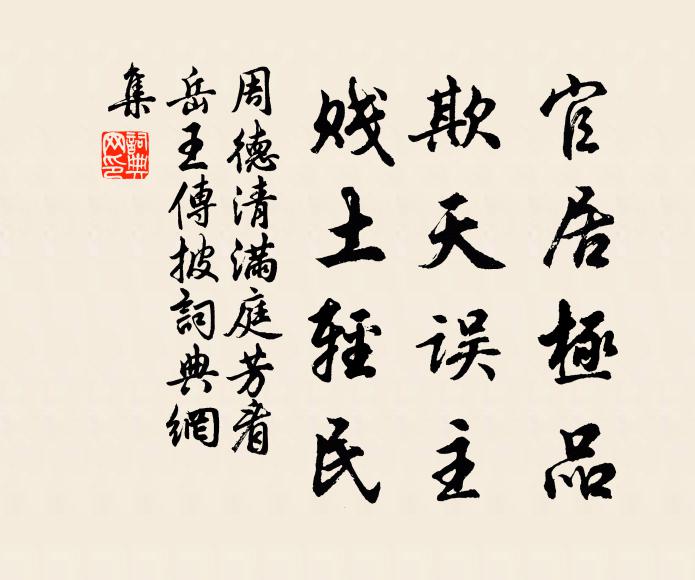 官居極品
欺天误主
贱土輕民
周德清滿庭芳看
岳王傳披詞典網
集
詞典
网印